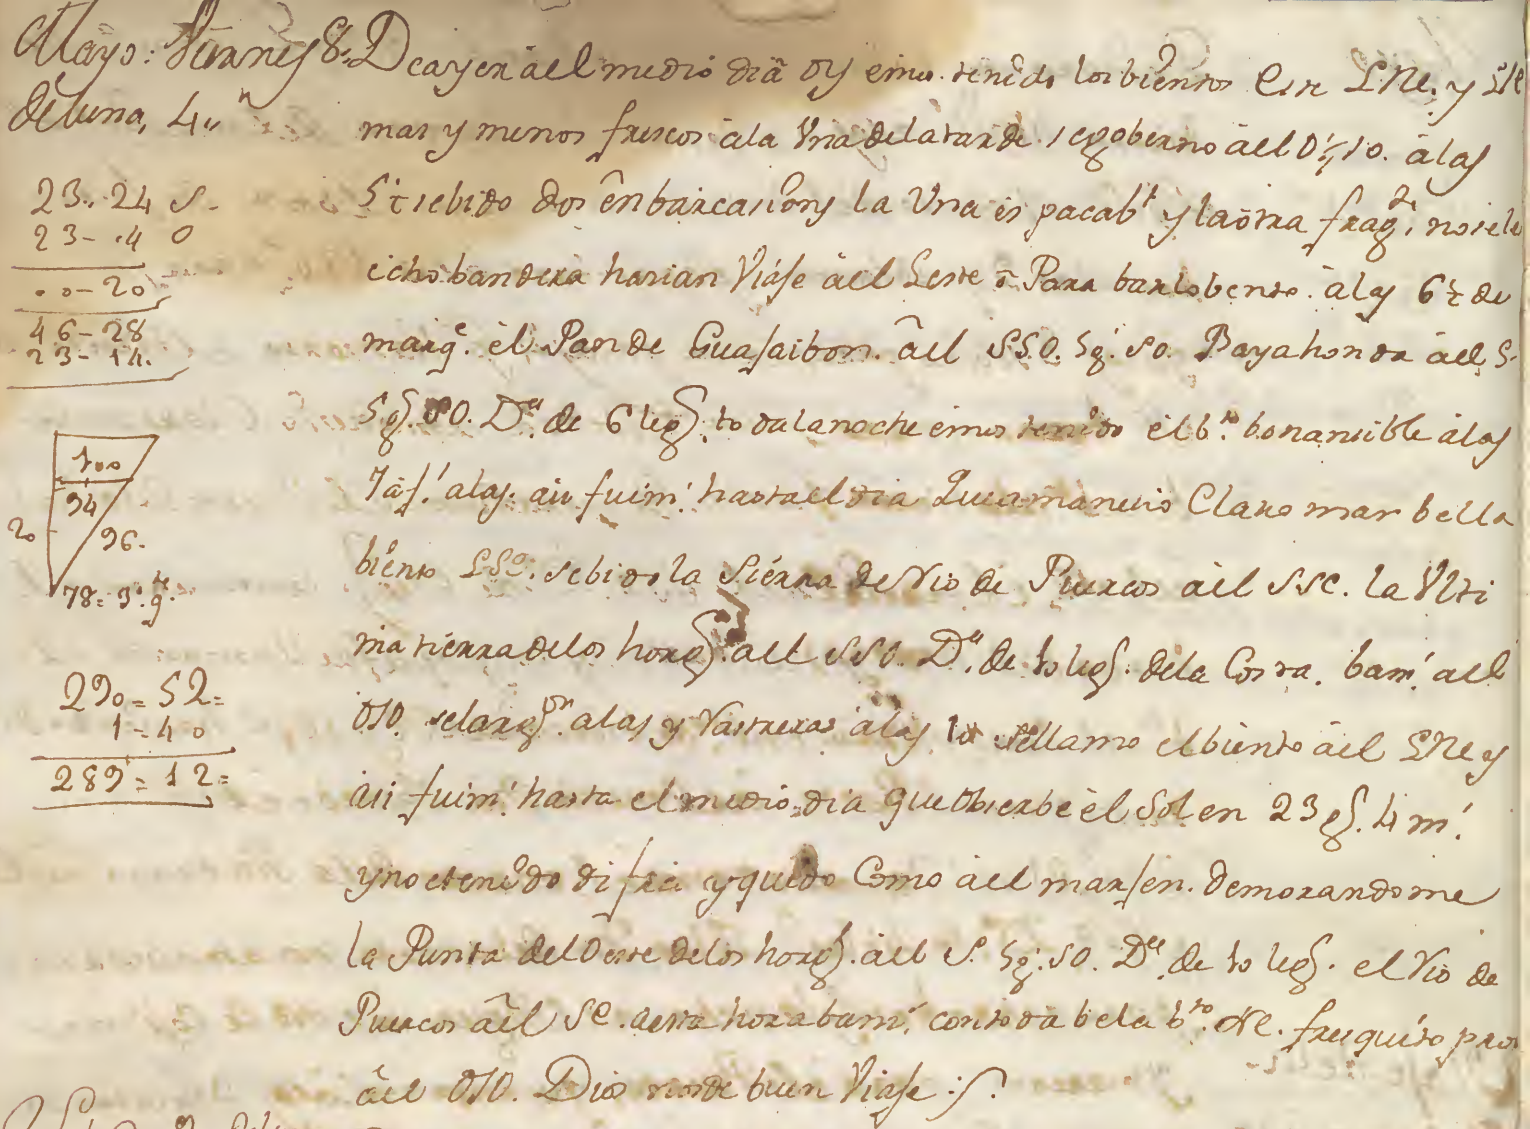 Mayo: Viernes 8.
de luna, 4"
23.. 24 S.
23 - .4 0
.. 0 - 20
46 - 28
23 - 14.
100
94
20
96.
78 = 3º. qte.
290 = 52 =
1 - 40
289 = 12 =
De ayer àel medio dia oy emo. tenido los bientos Este LNE. y Ste
mas y menos frescos àla Una delatarde segoberno àel O¼SO. àlas
5½ sebido dos enbarcasiones la Una es pacabt y laotra fragta. nosele
echo bandera harian Viaje àel Leste ò Para barlobento. àlas 6½ de
marqe. èl Pan de Guajaibon. àel SSO. 5g. SO. Bayahonda àel S.
5g. SO. Da. de 6 leg. to dalanoche emos tenido èl bto. bonansible àlas
7 alas. asi fuim. hastaeldia Queamanecio Claro mar bella
biento LSO. sebido la Sierra de Rio de Puercos àel SSE. la Ulti
ma tierra delos horg. àel SSO. Da. de 10 leg. dela Costa. bam. àel
OSO. selargon. alas y Rastreras àlas 10 sellamo elbiento àel LNE y
asi fuim. hasta el medio dia que Obserbe èl Sol en 23 g. 4 m.
y no etenido difra. y quedo Como àel marjen. demorandome
la Punta del Oeste delos horg. àel S. 5g. SO. Da. de 10 leg. el Rio de
Puercos àel SE. desta hora bam. contoda bela bto. NE. fresquito proa
àel OSO. Dios nosde buen Viaje :S.